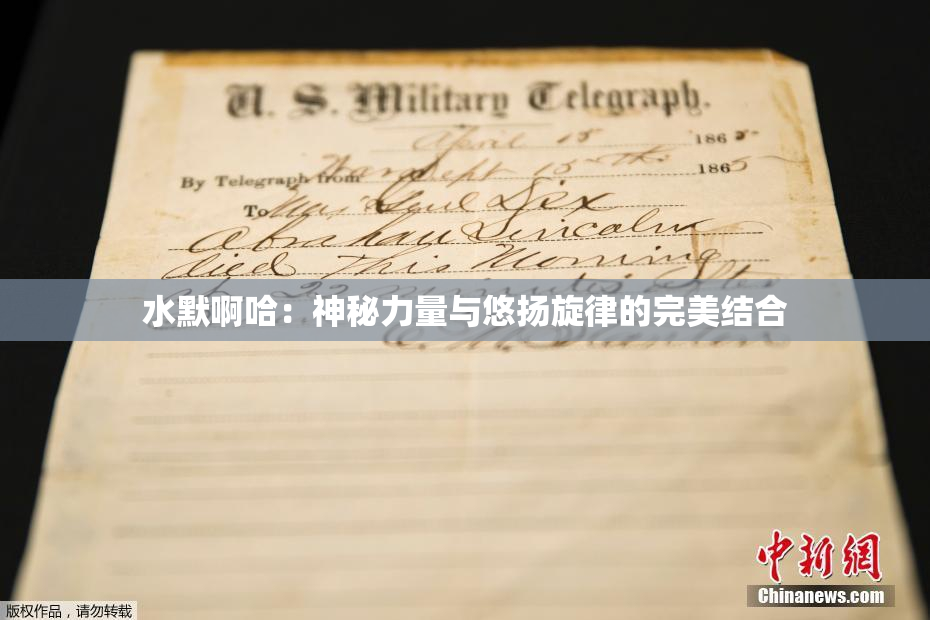 U. S. Military Telegraph.
April 15 1865
By Telegraph from War Dept 15th 1865
To Maj Genl Dix
Abraham Lincoln
died This Morning
at 22 minutes after
水默啊哈：神秘力量与悠扬旋律的完美结合
E. M. Stanton
中新網
Chinanews.com
版权作品，请勿转载